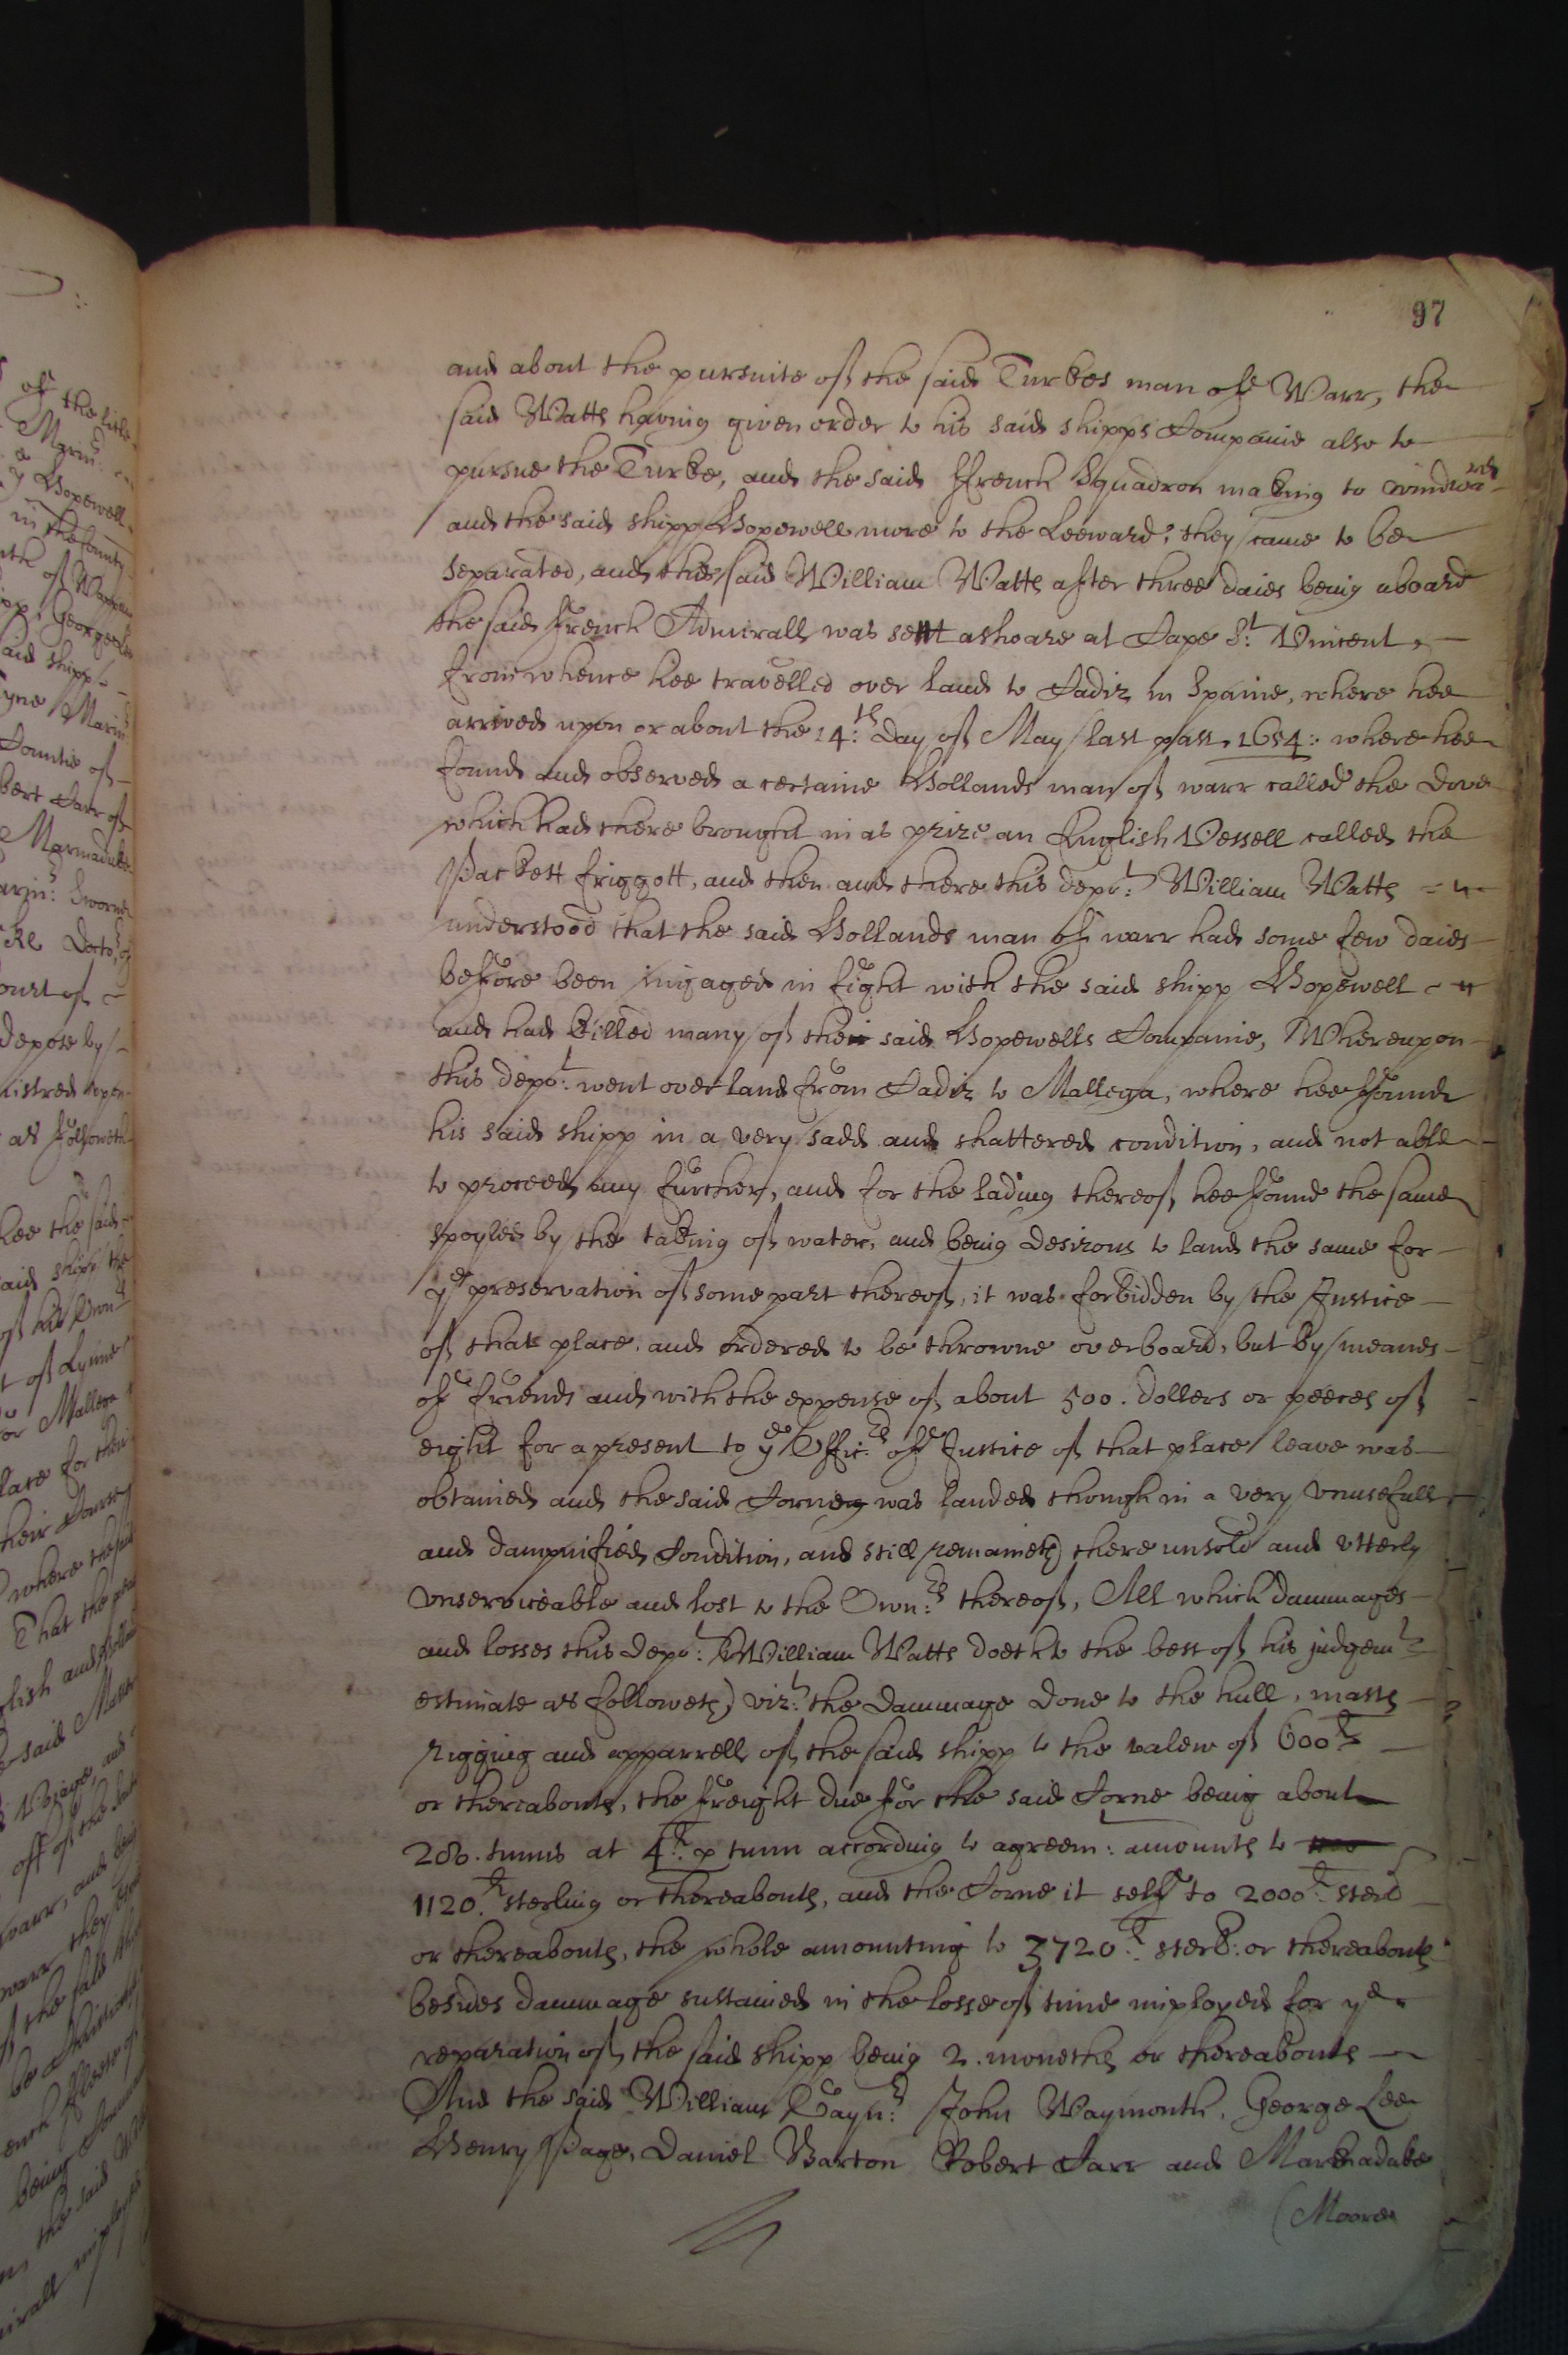 97
and about the pursuite of the said Turkes man of Warr, the
said Watts having given order to his said shipps Companie also to
pursue the Turke, and the said ffrench Squadron making to windwards
and the said shipp Hopewell more to the Leeward, they came to be
separated, and the said William Watts after three daies being aboard
the said french Admirall was sent ashoare at Cape St. Vincent,
from whence hee travelled over land to Cadiz in Spaine, where hee
arrived upon or about the 14:th day of May last past, 1654: where hee
found and observed a certaine Hollands man of warr called the Dove
which had there brought in as prize an English Vessell called the
Packett friggott, and then and there this depot: William Watts
understood that the said Hollands man of warr had some few daies
before been ingaged in fight with the said shipp Hopewell
and had killed many of their said Hopewells Companie, Whereupon
this depot: went over land from Cadiz to Mallega, where hee found
his said shipp in a very sadd and shattered condition, and not able
to proceed any further, and for the lading thereof hee found the same
spoyled by the taking of water, and being desirous to land the same for
ye preservation of some part thereof, it was forbidden by the Justice
of that place, and ordered to be throwne overboard, but by meanes
of friends and with the expense of about 500. dollers or peeces of
eight for a present to ye Officrs of Justice of that place leave was
obtained and the said Corne was landed though in a very vnusefull
and dampnified Condition, and still remaineth there unsold and vtterly
vnserviceable and lost to the Own:rs thereof, All which dammages
and losses this depot: William Watts doeth to the best of his judgemt
estimate as followeth, vizt: the dammage done to the hull, masts
rigging and apparrell of the said shipp to the valew of 600li
or thereabouts, the freight due for the said Corne being about
280. tunns at 4li: p tunn according to agreem: amounts to
1120li. sterling or thereabouts, and the Corne it self to 2000li. sterl
or thereabouts, the whole amounting to 3720li. sterl: or thereabouts
besides dammage sustained in the losse of time imployed for ye
reparation of the said shipp being 2. moneths or thereabouts
And the said William Raynr: John Waymouth, George Lee
Henry Page, Daniel Barton Robert Carr and Marmaduke
Moore